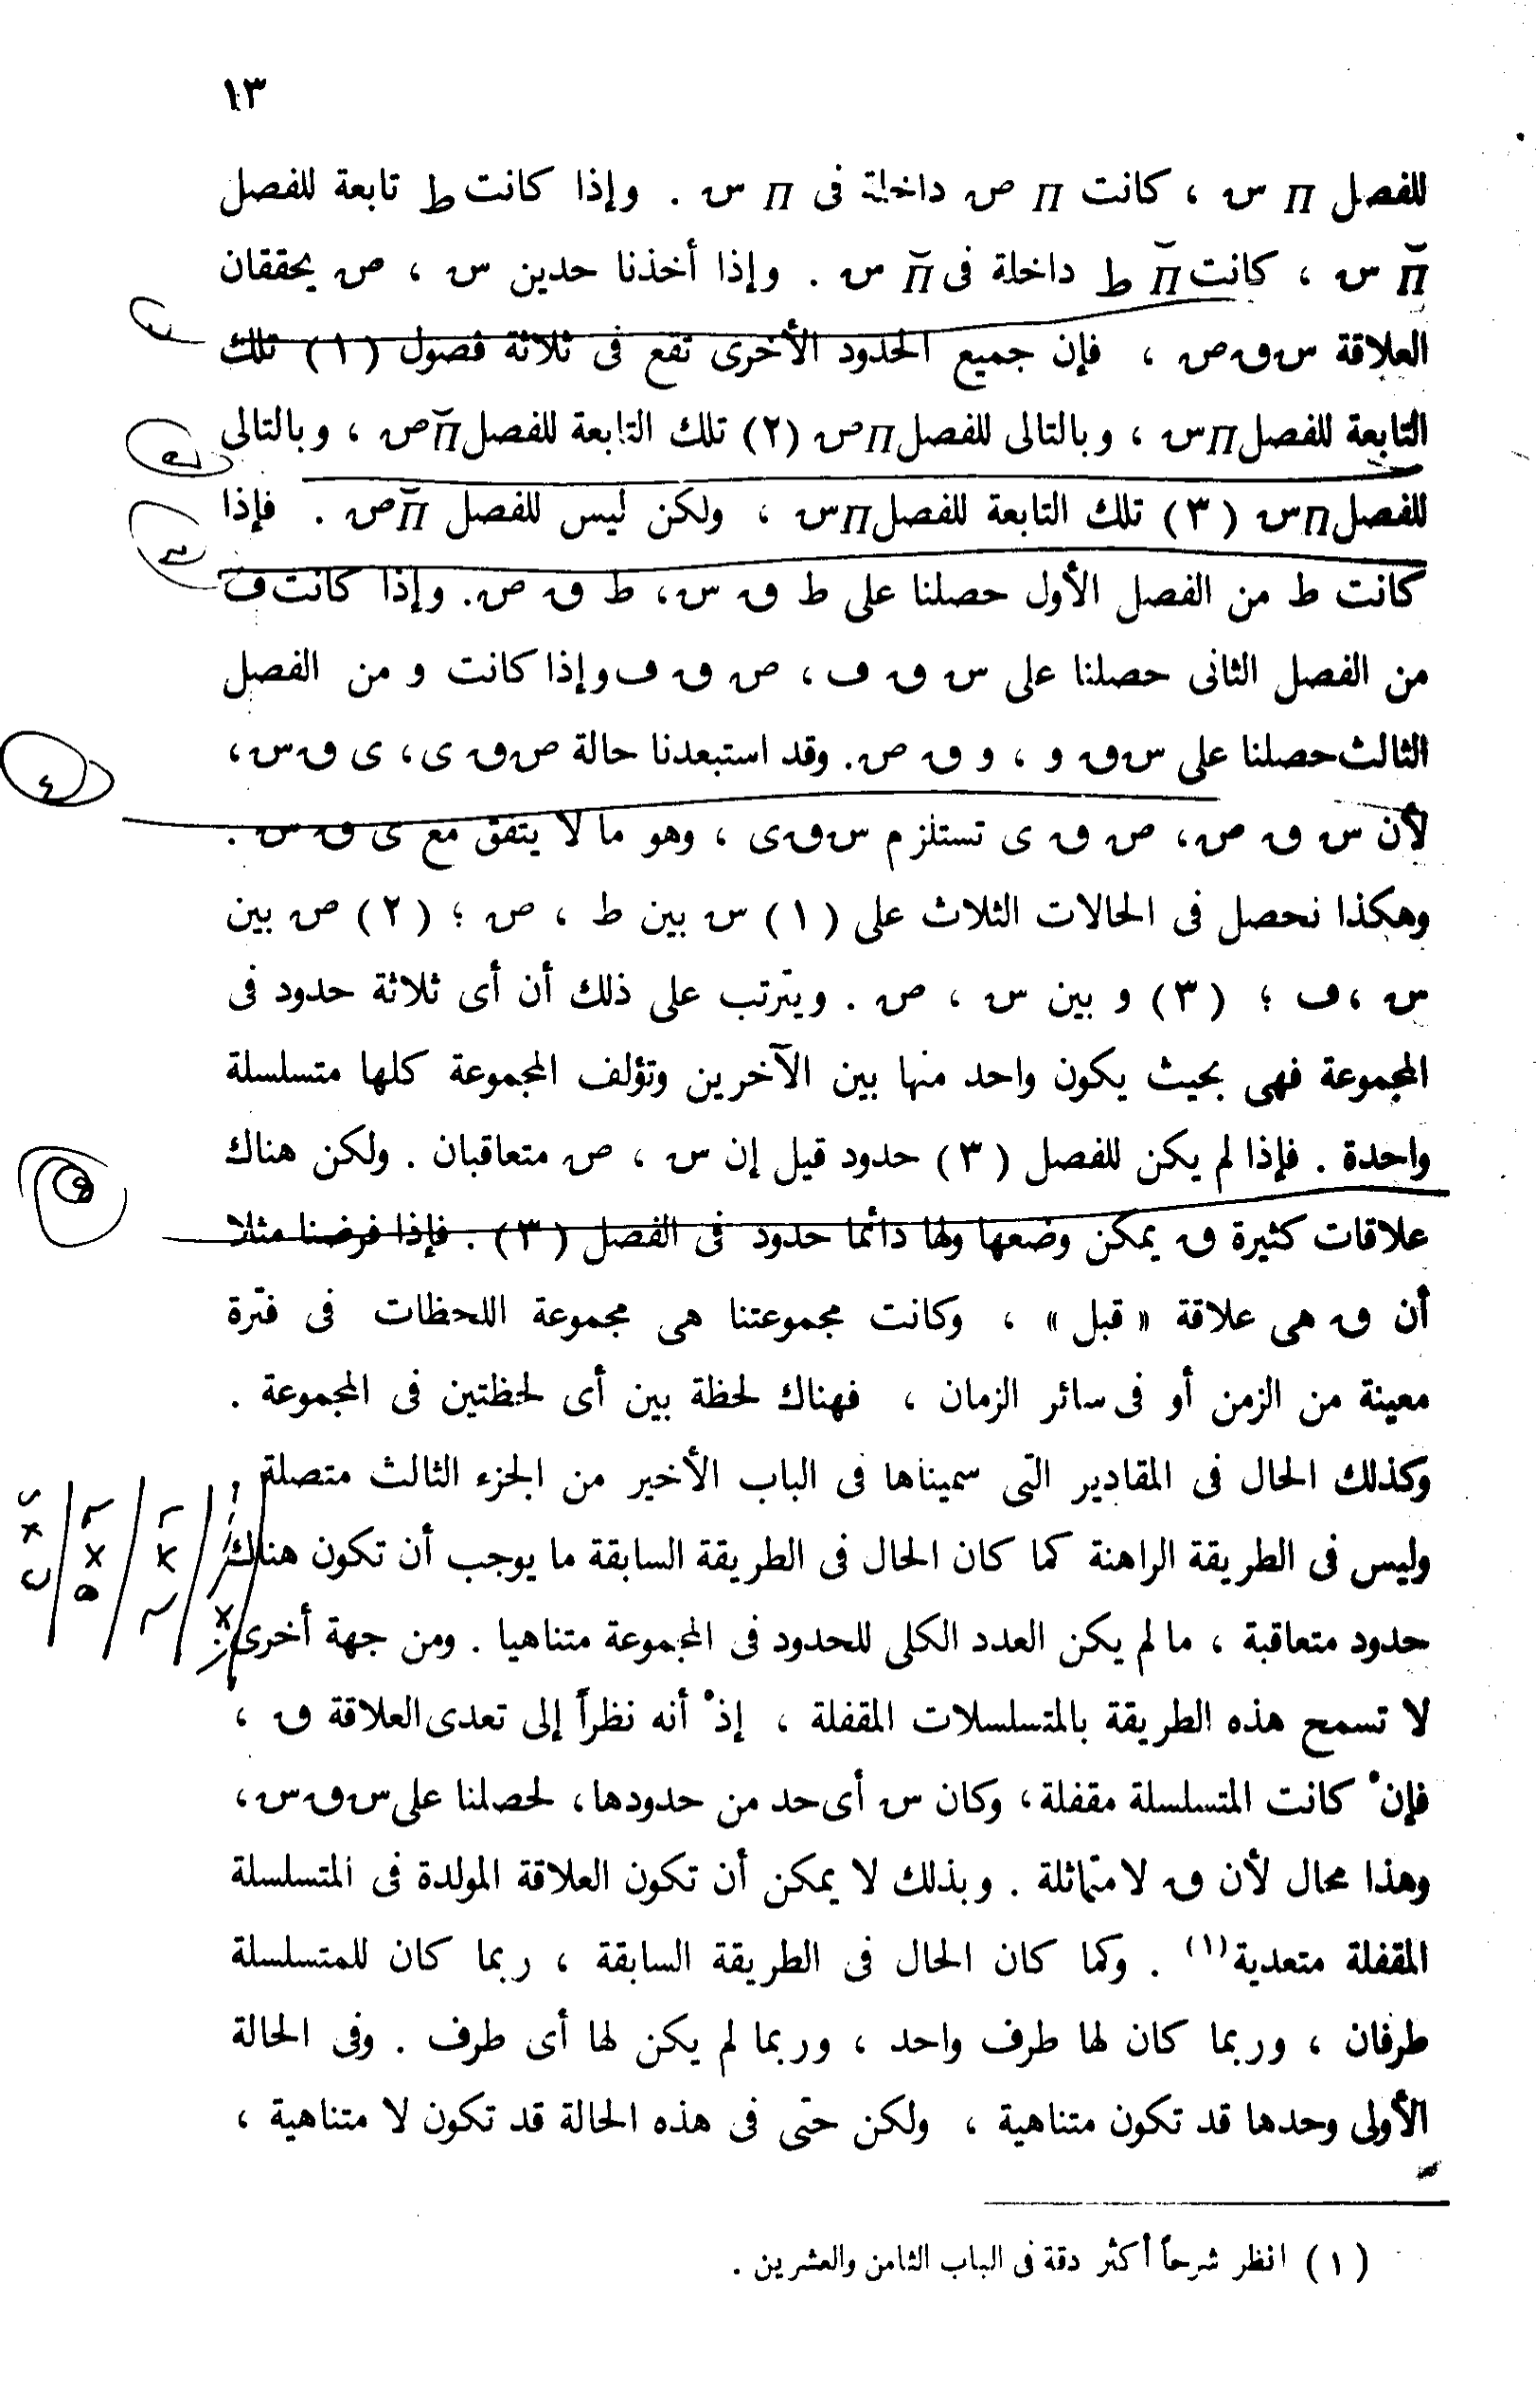 ١٣
للفصل Π س ، كانت Π ص داخلة فى Π س . وإذا كانت ط تابعة للفصل
Π̆ س ، كانت Π̆ ط داخلة فى Π̆ س . وإذا أخذنا حدين س ، ص يحققان
العلاقة س ق ص ، فإن جميع الحدود الأخرى تقع فى ثلاثة فصول (١) تلك
التابعة للفصل Π س ، وبالتالى للفصل Π ص (٢) تلك التابعة للفصل Π̆ ص ، وبالتالى
للفصل Π̆ س (٣) تلك التابعة للفصل Π̆ س ، ولكن ليس للفصل Π̆ ص . فإذا
كانت ط من الفصل الأول حصلنا على ط ق س، ط ق ص. وإذا كانت ف
من الفصل الثانى حصلنا على س ق ف ، ص ق ف وإذا كانت و من الفصل
الثالث حصلنا على س ق و ، و ق ص. وقد استبعدنا حالة ص ق ى، ى ق س،
لأن س ق ص، ص ق ى تستلزم س ق ى ، وهو ما لا يتفق مع ى ق س .
وهكذا نحصل فى الحالات الثلاث على (١) س بين ط ، ص ؛ (٢) ص بين
س ، ف ؛ (٣) و بين س ، ص . ويترتب على ذلك أن أى ثلاثة حدود فى
المجموعة فهى بحيث يكون واحد منها بين الآخرين وتؤلف المجموعة كلها متسلسلة
واحدة . فإذا لم يكن للفصل (٣) حدود قيل إن س ، ص متعاقبان . ولكن هناك
علاقات كثيرة ق يمكن وضعها ولها دائما حدود فى الفصل (٣) . فإذا فرضنا مثلا
أن ق هى علاقة « قبل » ، وكانت مجموعتنا هى مجموعة اللحظات فى فترة
معينة من الزمن أو فى سائر الزمان ، فهناك لحظة بين أى لحظتين فى المجموعة .
وكذلك الحال فى المقادير التى سميناها فى الباب الأخير من الجزء الثالث متصلة ،
وليس فى الطريقة الراهنة كما كان الحال فى الطريقة السابقة ما يوجب أن تكون هناك
حدود متعاقبة ، ما لم يكن العدد الكلى للحدود فى المجموعة متناهيا . ومن جهة أخرى
لا تسمح هذه الطريقة بالمتسلسلات المقفلة ، إذْ أنه نظراً إلى تعدى العلاقة ق ،
فإنْ كانت المتسلسلة مقفلة، وكان س أى حد من حدودها، لحصلنا على س ق س،
وهذا محال لأن ق لا متماثلة . وبذلك لا يمكن أن تكون العلاقة المولدة فى المتسلسلة
المقفلة متعدية(١) . وكما كان الحال فى الطريقة السابقة ، ربما كان للمتسلسلة
طرفان ، وربما كان لها طرف واحد ، وربما لم يكن لها أى طرف . وفى الحالة
الأولى وحدها قد تكون متناهية ، ولكن حتى فى هذه الحالة قد تكون لا متناهية ،
(١) انظر شرحاً أكثر دقة فى الباب الثامن والعشرين .